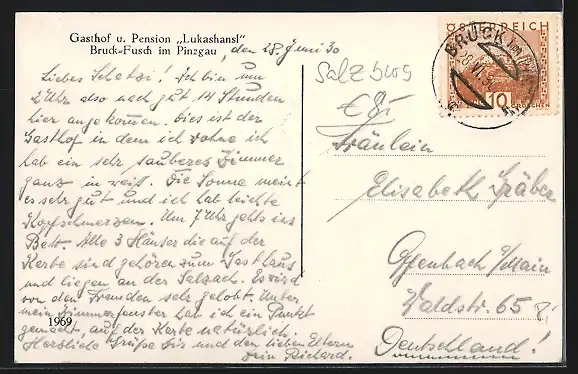 Gasthof u. Pension „Lukashansl"
Bruck-Fusch im Pinzgau, den 28. Juni 30
Liebes Schatzi! Ich bin um
2 Uhr also nach gut 14 Stunden
hier angekommen. Dies ist der
Gasthof in dem ich wohne ich
hab ein sehr sauberes Zimmer
ganz in weiß. Die Sonne meint
es sehr gut und ich hab leichte
Kopfschmerzen. Um 7 Uhr gehts ins
Bett. Alle 3 Häuser die auf der
Karte sind gehören zum Gasthaus
und liegen an der Salzach. Es wird
von den Fremden sehr gelobt. Unter
mein Zimmerfenster hab ich ein Punkt
gemacht, auf der Karte natürlich.
Herzliche Grüße Dir und den lieben Eltern
Dein Richard.
1969
Salzburg
€ 8,-
ÖSTERREICH
10 GROSCHEN
BRUCK im
Fräulein
Elisabeth Gräber
Offenbach a/Main
Waldstr. 65
Deutschland!